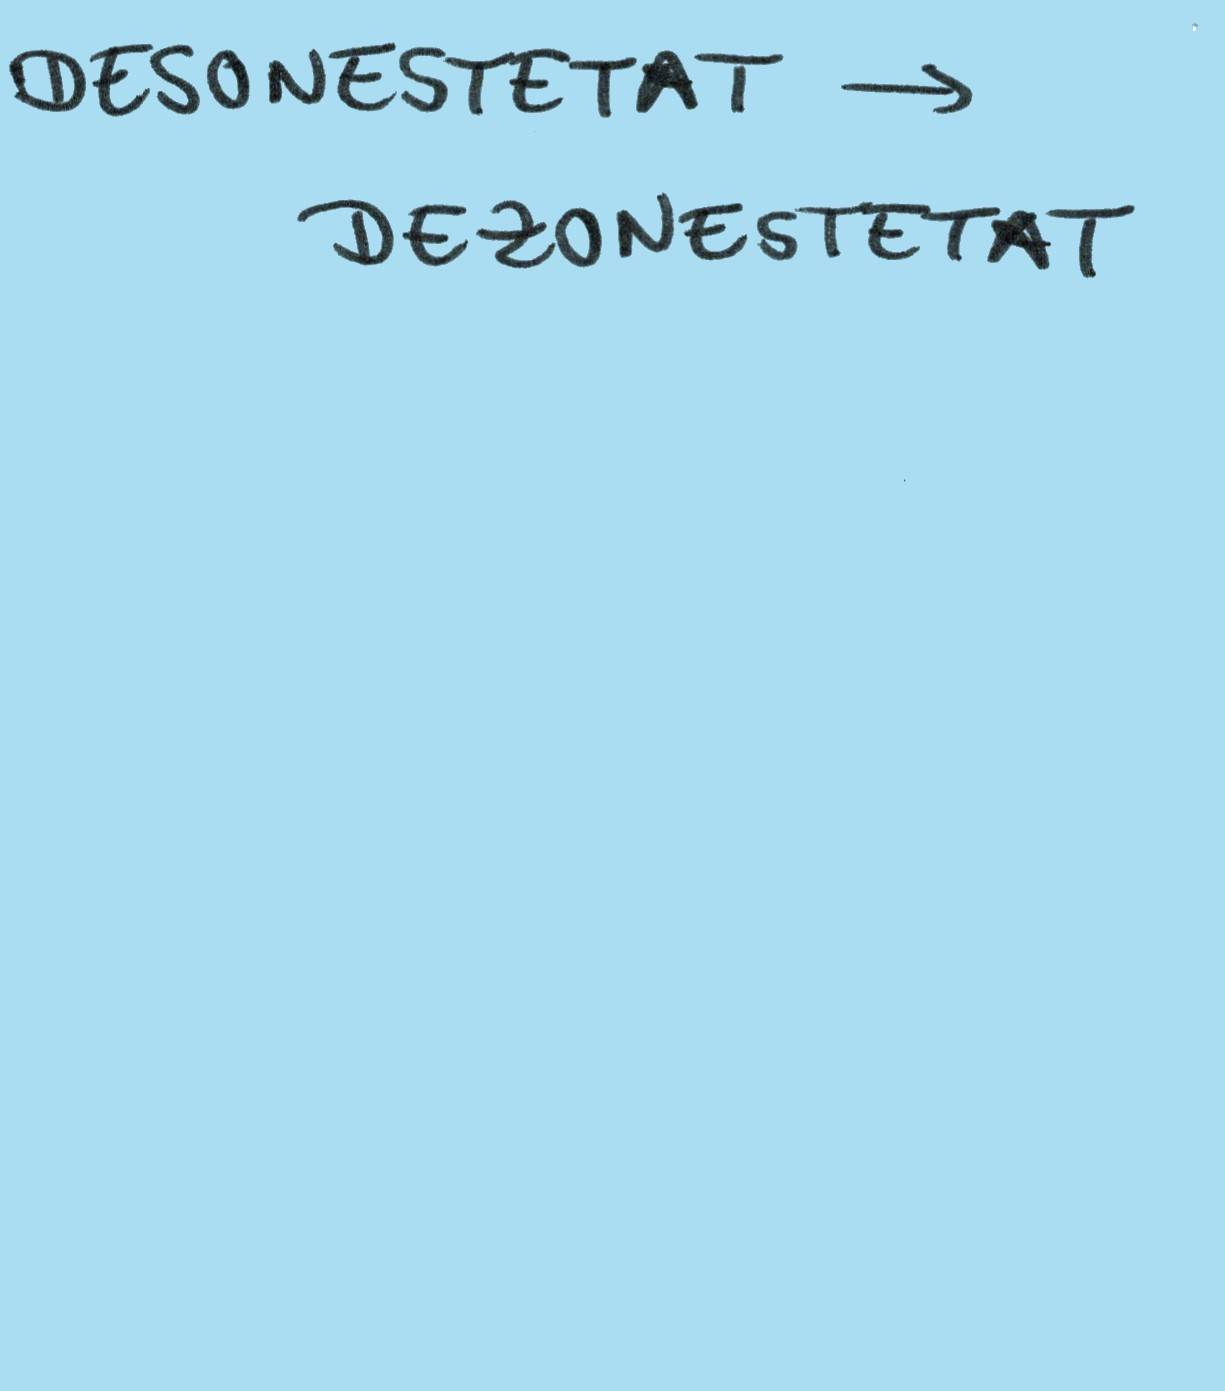 DESONESTETAT →
DEZONESTETAT